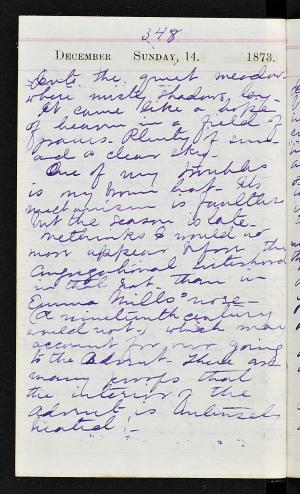 348
DECEMBER SUNDAY, 14. 1873.
Into the quiet meadow
where misty shadows lay—
It came like a hope
of heaven in a field of
graves. Plenty of sun
and a clear sky.
One of my troubles
is my brown hat. Its
mechanism is faultless
but the season is late.
Methinks I would no
more appear upon the
Congregational
in that hat than in
Emma Mills' nose—
(a nineteenth century
would not—) which may
account for our going
to the Advent. There are
many proofs that
the interior of the
Advent is
heated!—